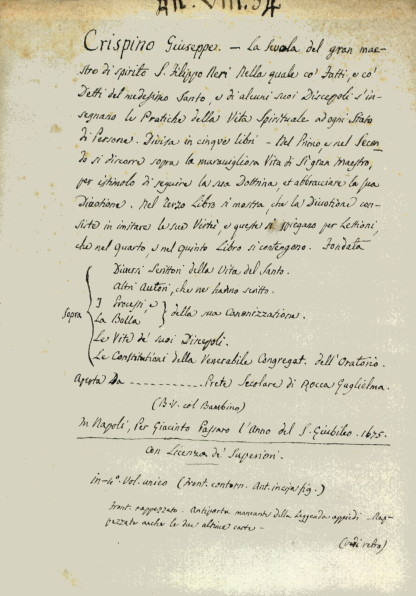 An. VIII. 34
Crispino Giuseppe. - La Scuola del gran mae-
stro di spirito S. Filippo Neri Nella quale co' Fatti, e co'
Detti del medesimo Santo, e di alcuni suoi Discepoli s'in-
segnano le Pratiche della Vita Spirituale ad ogni Stato
di Persone. Divisa in cinque libri - Nel Primo, e nel Secon
do si discorre sopra la maravigliosa Vita di Sì gran Maestro,
per istimolo di seguire la sua Dottrina, et abbracciare la sua
Divotione. Nel Terzo Libro si mostra che la Divotione con-
siste in imitare le sue Virtù, e queste si spiegano per Lettioni,
che nel quarto, e nel quinto Libro si contengono. Fondata
Diversi Scrittori della Vita del Santo.
Altri Autori, che ne hanno scritto.
Sopra { I Processi, e La Bolla } della sua Canonizzatione.
Le Vite de' suoi Discepoli.
Le Constitutioni della Venerabile Congregat. dell'Oratorio.
Aperta Da ............... Prete Secolare di Rocca Guglielma.
(B.V. col Bambino)
In Napoli, Per Giacinto Passaro l'Anno del S. Giubileo. 1675.
Con Licenza de' Superiori.
in-4°. Vol. unico (front. contorn. Ant. incisa fig.)
Front. rappezzato. Antiporta mancante della Leggenda appiedi - Rap-
pezzate anche le due ultime carte -
(vedi retro)